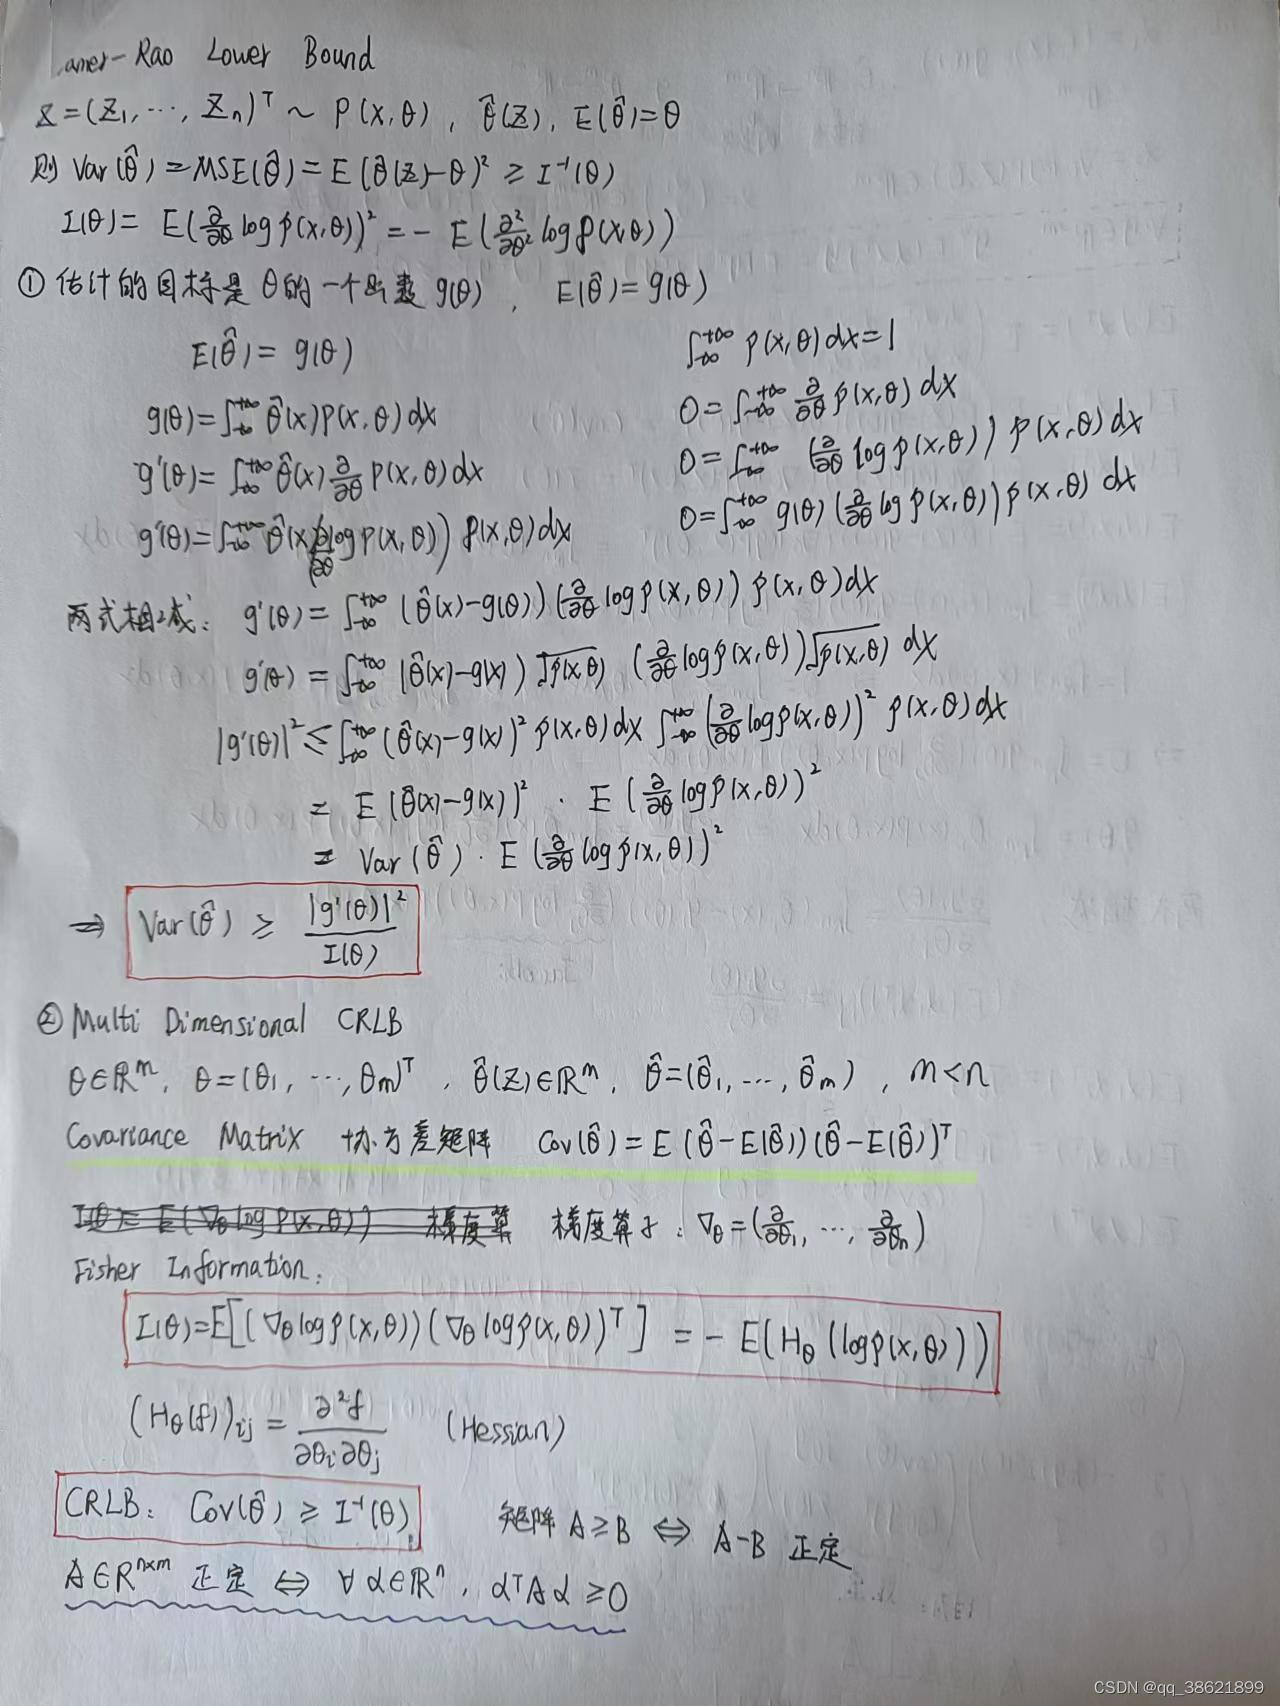 amer-Rao Lower Bound
Z=(Z₁,⋯,Zₙ)ᵀ ~ p(x,θ), θ̂(Z), E(θ̂)=θ
则 Var(θ̂)=MSE(θ̂)=E(θ̂(Z)-θ)² ≥ I⁻¹(θ)
I(θ)= E(∂/∂θ log p(x,θ))² = - E(∂²/∂θ² log p(x,θ))
① 估计的目标是 θ的一个函数 g(θ), E(θ̂)=g(θ)
E(θ̂)=g(θ)
g(θ)=∫₋∞⁺∞ θ̂(x)p(x,θ)dx
g'(θ)=∫₋∞⁺∞ θ̂(x) ∂/∂θ p(x,θ)dx
g'(θ)=∫₋∞⁺∞ θ̂(x)(∂/∂θ log p(x,θ)) p(x,θ)dx
∫₋∞⁺∞ p(x,θ)dx=1
0=∫₋∞⁺∞ ∂/∂θ p(x,θ) dx
0=∫₋∞⁺∞ (∂/∂θ log p(x,θ)) p(x,θ)dx
0=∫₋∞⁺∞ g(θ)(∂/∂θ log p(x,θ))p(x,θ) dx
两式相减: g'(θ)=∫₋∞⁺∞ (θ̂(x)-g(θ))(∂/∂θ log p(x,θ)) p(x,θ)dx
g'(θ)=∫₋∞⁺∞ (θ̂(x)-g(x))√p(x,θ) (∂/∂θ log p(x,θ))√p(x,θ) dx
|g'(θ)|² ≤ ∫₋∞⁺∞ (θ̂(x)-g(x))² p(x,θ)dx ∫₋∞⁺∞ (∂/∂θ log p(x,θ))² p(x,θ)dx
= E(θ̂(x)-g(x))² · E(∂/∂θ log p(x,θ))²
= Var(θ̂) · E(∂/∂θ log p(x,θ))²
⇒ Var(θ̂) ≥ |g'(θ)|²/I(θ)
② Multi Dimensional CRLB
θ∈ℝᵐ, θ=(θ₁,⋯,θₘ)ᵀ, θ̂(Z)∈ℝᵐ, θ̂=(θ̂₁,⋯,θ̂ₘ), m<n
Covariance Matrix 协方差矩阵 Cov(θ̂)=E(θ̂-E(θ̂))(θ̂-E(θ̂))ᵀ
I(θ)= E(∇θ log p(x,θ)) 梯度算 梯度算子: ∇θ=(∂/∂θ₁,⋯,∂/∂θₙ)
Fisher Information:
I(θ)=E[(∇θ log p(x,θ))(∇θ log p(x,θ))ᵀ] = - E(Hθ(log p(x,θ)))
(Hθ(f))ᵢⱼ = ∂²f/∂θᵢ∂θⱼ (Hessian)
CRLB: Cov(θ̂) ≥ I⁻¹(θ) 矩阵 A≥B ⇔ A-B 正定
A∈ℝⁿˣᵐ 正定 ⇔ ∀ α∈ℝⁿ, αᵀAα ≥0
CSDN @qq_38621899